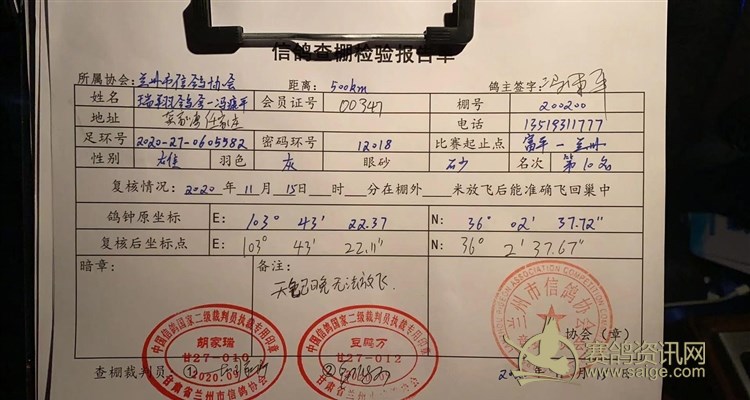 信鸽查棚检验报告单
所属协会：兰州市信鸽协会 距离：500km 鸽主签字：
姓名 瑞翔鸽舍-冯 平 会员证号 00347 棚号 200200
地址 电话 13519311777
足环号 2020-27-0605582 密码环号 12018 比赛起止点 富平-兰州
性别 雄 羽色 灰 眼砂 砂 名次 第10名
复核情况：2020年11月15日 时 分在棚外 米放飞后能准确飞回巢中
鸽钟原坐标 E： 103° 43′ 22.37 N： 36° 02′ 37.72"
复核后坐标点 E： 103° 43′ 22.11" N： 36° 2′ 37.67"
暗章： 备注：
天色已晚无法放飞.
中国信鸽国家二级裁判员执裁专用印章
胡家瑞
甘27-010
2020.09
甘肃省兰州市信鸽协会
中国信鸽国家二级裁判员执裁专用印章
甘27-012
甘肃省兰州市信鸽协会
兰州市信鸽协会
协会（章）
查棚裁判员 ① ②
赛鸽资讯网
www.saige.com